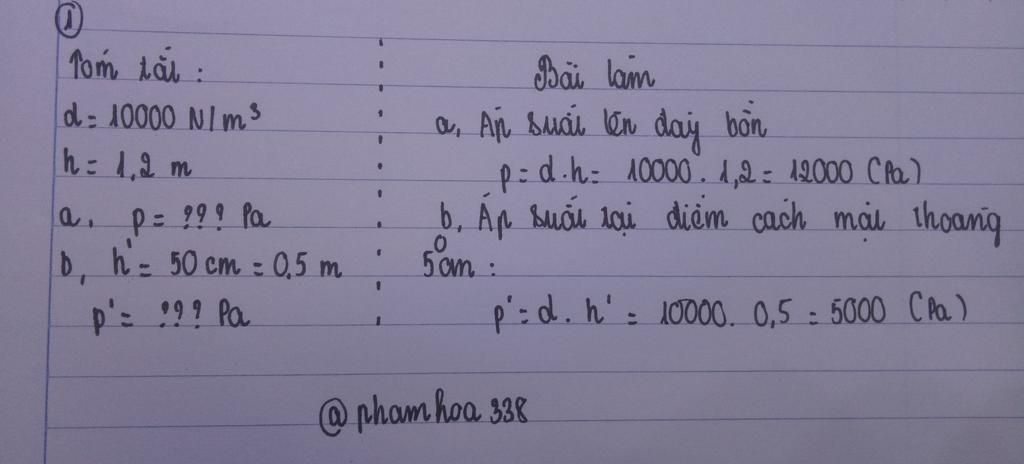 1
Tóm tắt :
d = 10000 N/m³
h = 1,2 m
a, p = ??? Pa
b, h' = 50 cm = 0,5 m
p' = ??? Pa
Bài làm
a, Áp suất lên đáy bồn
p = d.h = 10000 . 1,2 = 12000 (Pa)
b, Áp suất tại điểm cách mặt thoáng
50cm :
p' = d . h' = 10000. 0,5 = 5000 (Pa)
@phamhoa338